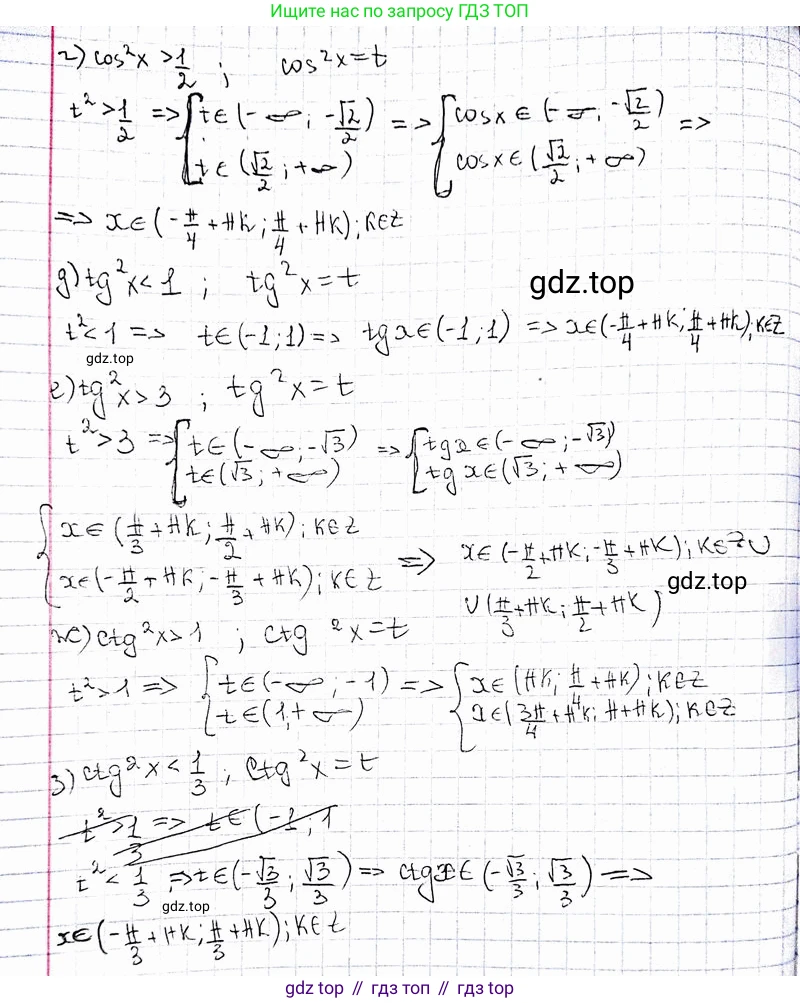 Ищите нас по запросу ГДЗ ТОП
г) cos²x > 1/2 ; cos²x = t
t² > 1/2 => { t ∈ (-∞; -√2/2) => { cosx ∈ (-∞; -√2/2) =>
t ∈ (√2/2; +∞) cosx ∈ (√2/2; +∞)
=> x ∈ (-π/4 + πk; π/4 + πk); k∈Z
д) tg²x < 1 ; tg²x = t
gdz.top
t² < 1 => t ∈ (-1; 1) => tgx ∈ (-1; 1) => x ∈ (-π/4 + πk; π/4 + πk); k∈Z
gdz.top
е) tg²x > 3 ; tg²x = t
t² > 3 => { t ∈ (-∞; -√3) => { tgx ∈ (-∞; -√3)
t ∈ (√3; +∞) tgx ∈ (√3; +∞)
{ x ∈ (π/3 + πk; π/2 + πk); k∈Z => x ∈ (-π/2 + πk; -π/3 + πk); k∈Z U
x ∈ (-π/2 + πk; -π/3 + πk); k∈Z
gdz.top
U (π/3 + πk; π/2 + πk)
ж) ctg²x > 1 ; ctg²x = t
t² > 1 => { t ∈ (-∞; -1) => { x ∈ (πk; π/4 + πk); k∈Z
t ∈ (1, +∞) x ∈ (3π/4 + πk; π + πk); k∈Z
з) ctg²x < 1/3 ; ctg²x = t
t² > 1/3 => t ∈ (-1; 1
t² < 1/3 => t ∈ (-√3/3; √3/3) => ctgx ∈ (-√3/3; √3/3) =>
gdz.top
x ∈ (-π/3 + πk; π/3 + πk); k∈Z
gdz.top // гдз топ // гдз.top